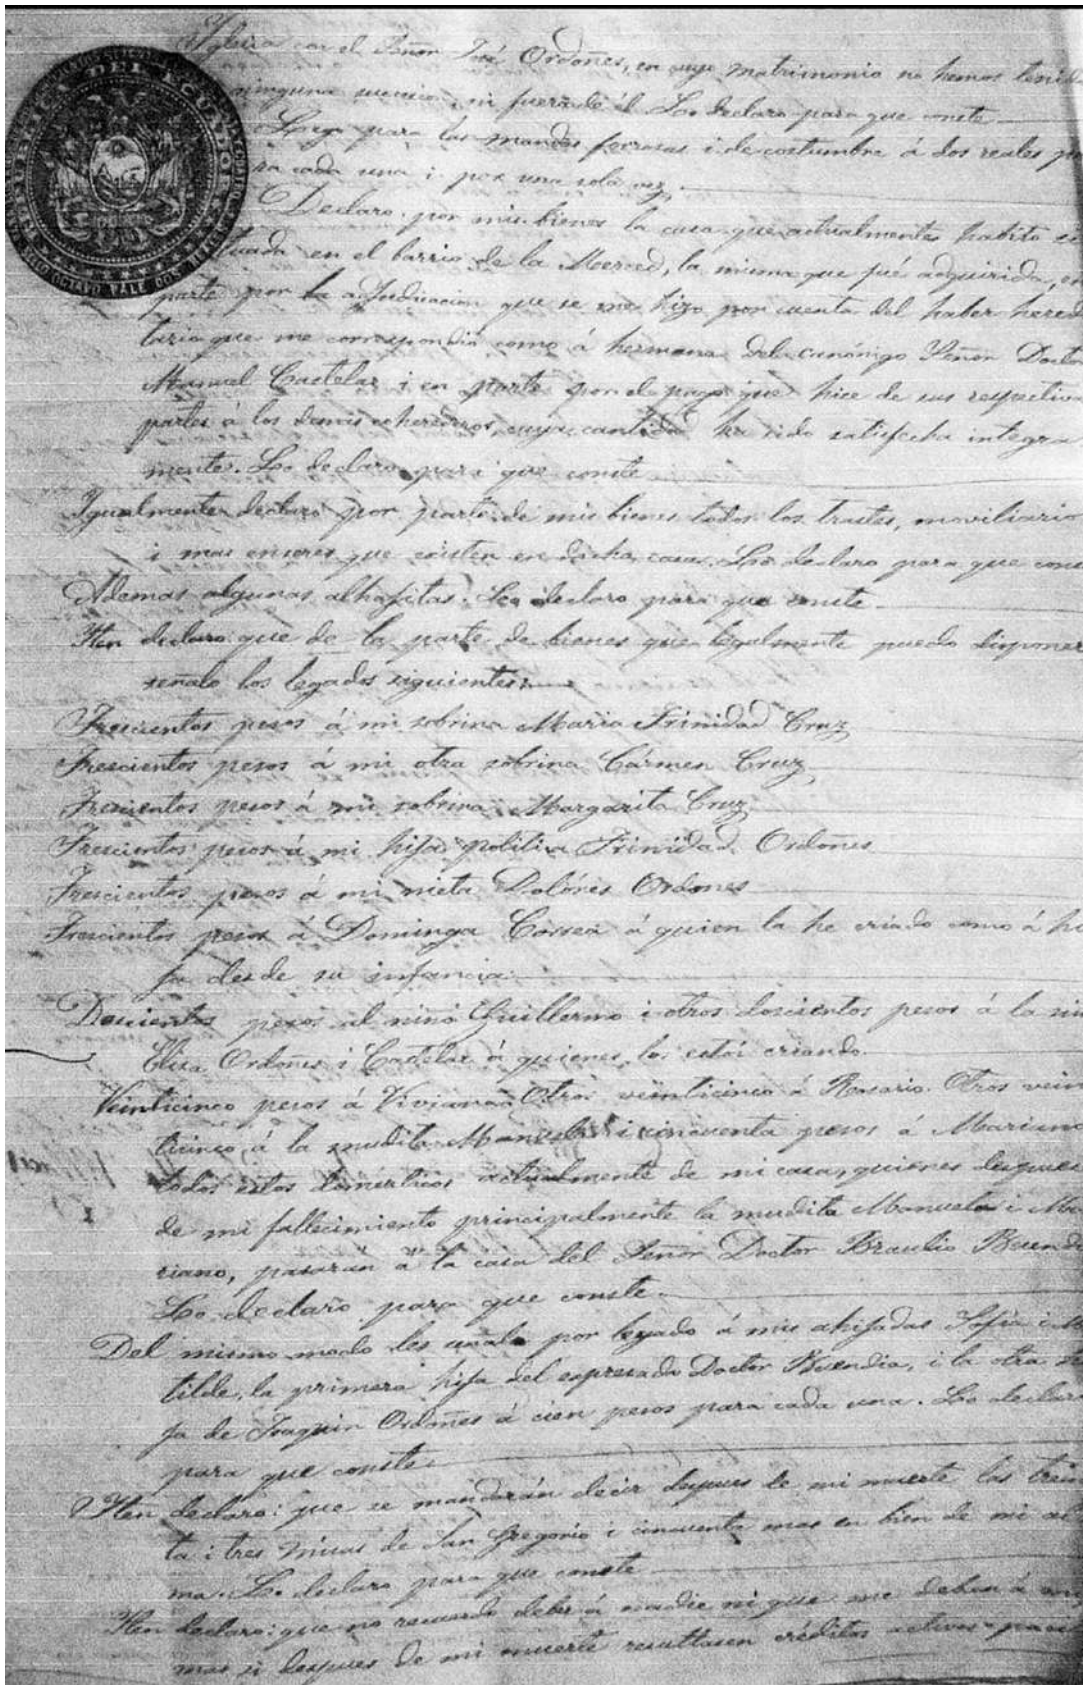 REPUBLICA DEL ECUADOR
OCTAVO VALE DOS REALES
Iglesia con el Señor José Ordoñes, en cuyo matrimonio no hemos tenido
ninguna sucecion, ni fuera de él Lo declaro para que conste
Lego para las mandas forzosas i de costumbre á dos reales pa
ra cada una i por una sola vez.
Declaro por mis bienes la casa que actualmente habito si
tuada en el barrio de la Merced, la misma que fué adquirida, en
parte por la adjudicacion que se me hizo por cuenta del haber heredi
tario que me correspondió como á hermana del canónigo Señor Doctor
Manuel Castelar i en parte por el pago que hice de sus respectivas
partes á los demas coherederos, cuya cantidad ha sido satisfecha integra
mente. Lo declaro para que conste
Igualmente declaro por parte de mis bienes todos los trastes, moviliario
i mas enseres que existen en dicha casa. Lo declaro para que cons
Ademas algunas alhajitas. Lo declaro para que conste
Iten declaro que de la parte de bienes que legalmente puedo disponer
señalo los legados siguientes:
Trescientos pesos á mi sobrina Maria Trinidad Cruz
Trescientos pesos á mi otra sobrina Cármen Cruz
Trescientos pesos á mi sobrina Margarita Cruz
Trescientos pesos á mi hija politica Trinidad Ordoñes
Trescientos pesos á mi nieta Dolóres Ordones
Trescientos pesos á Dominga Correa á quien la he criado como á hi
ja desde su infancia
Doscientos pesos al niño Guillermo i otros doscientos pesos á la niñ
Elisa Ordoñes i Castelar á quienes los estoi criando.
Veinticinco pesos á Viviana Otros veinticinco á Rosario. Otros vein
ticinco á la mudita Manuela i cincuenta pesos á Mariano
todos estos domésticos actualmente de mi casa, quienes despues
de mi fallecimiento principalmente la mudita Manuela i Ma
riano, pasarán á la casa del Señor Doctor Braulio Buendi
Lo declaro para que conste.
Del mismo modo les señalo por legado á mis ahijadas Sofia i Ma
tilde, la primera hija del espresado Doctor Buendia, i la otra hi
ja de Joaquin Ordoñes á cien pesos para cada una. Lo declaro
para que conste
Iten declaro: que se mandarán decir despues de mi muerte las trein
ta i tres misas de San Gregorio i cincuenta mas en bien de mi al
ma. Lo declaro para que conste
Iten declaro: que no recuerdo deber á nadie ni que me deban á mi
mas si despues de mi muerte resultasen créditos activos